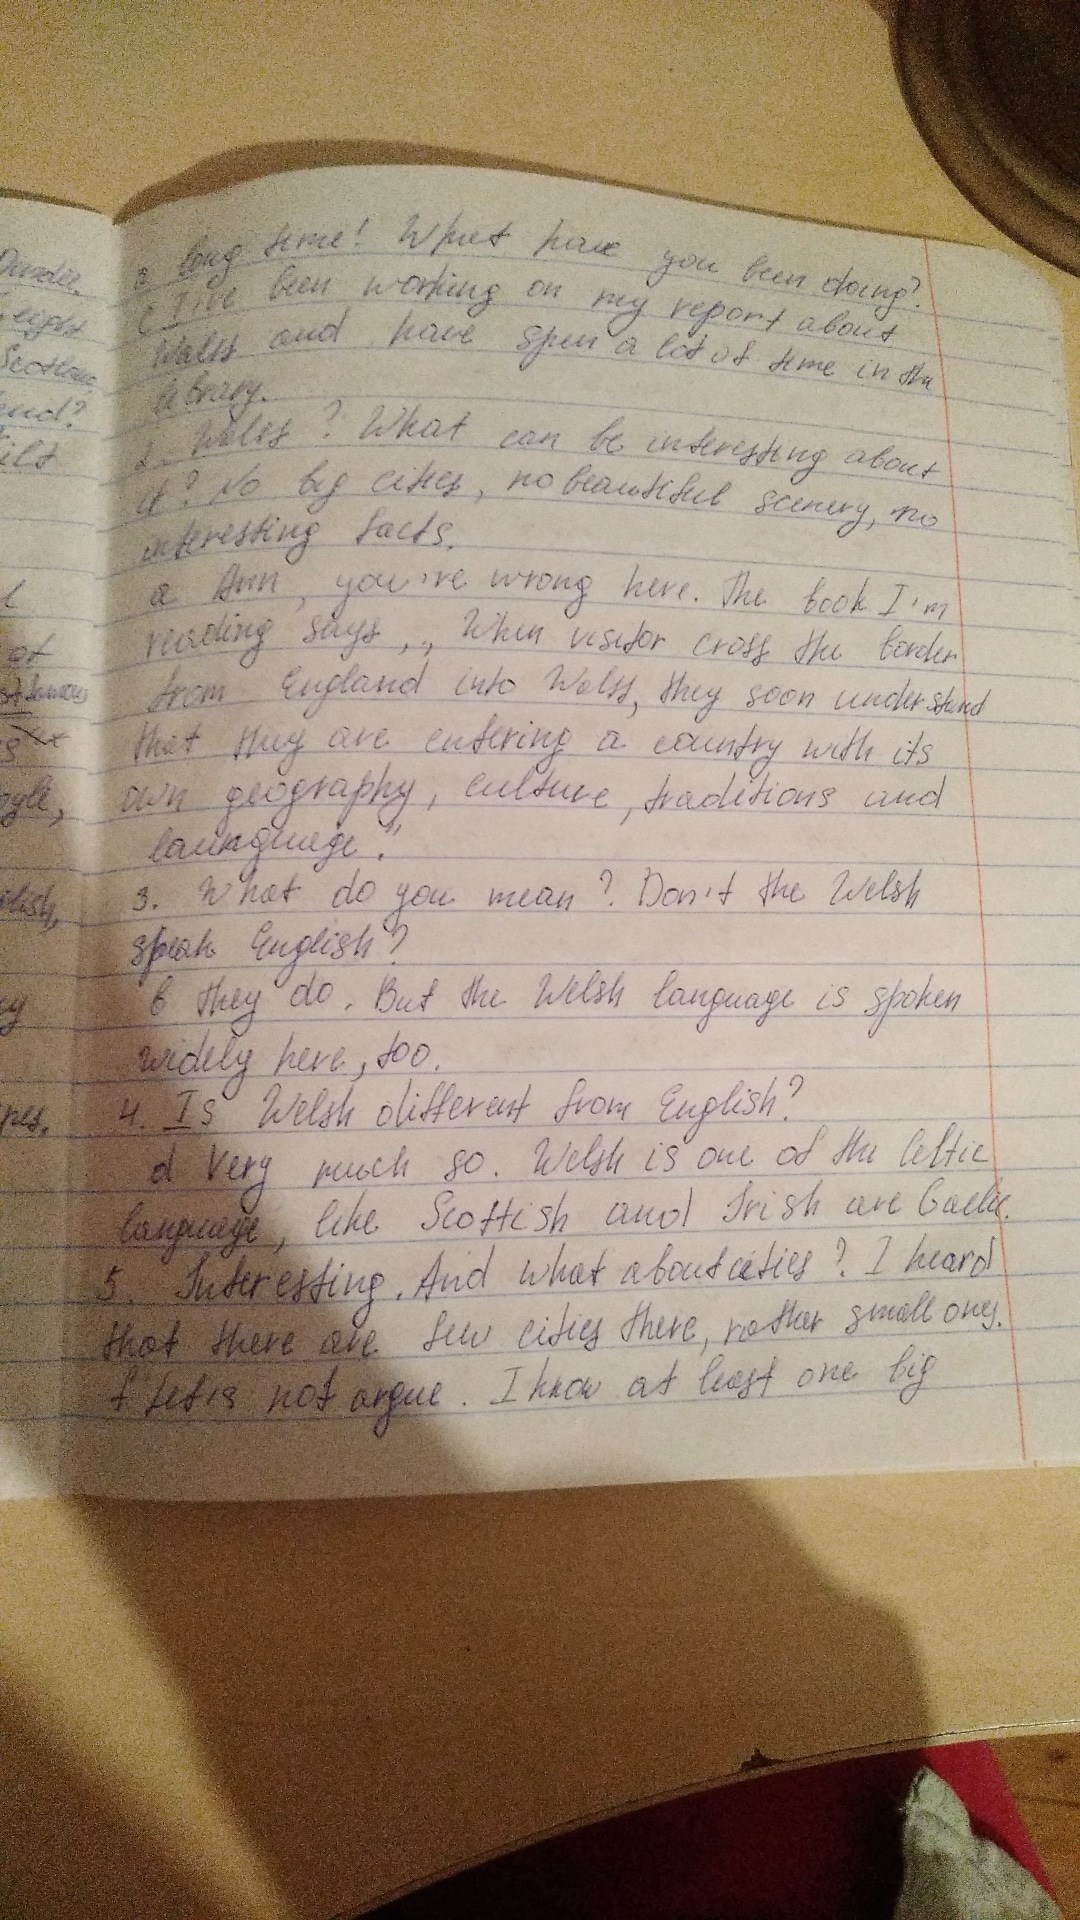 Dundee.
eight
Scotland
and?
kilt
l
of
st famous
s
gyle,
glish,
cy
ipes.
a long time! What have you been doing?
c I've been working on my report about
Walss and have spen a lot of time in the
librarg.
2. Walss? What can be interesting about
it? No big cities, no beautiful scenery, no
interesting facts.
a Ann, you're wrong here. The book I'm
reading says ,,When visitor cross the border
from England into Walss, they soon understand
that they are entering a country with its
own geography, culture, traditions and
language."
3. What do you mean? Don't the Welsh
speak English?
b they do. But the Welsh language is spoken
widely here, too.
4. Is Welsh different from English?
d Very much so. Welsh is one of the Celtic
language, like Scottish and Irish are Gaelic.
5. Interesting. And what about cities? I heard
that there are few cities there, rather small ones.
f Let's not argue. I know at least one big